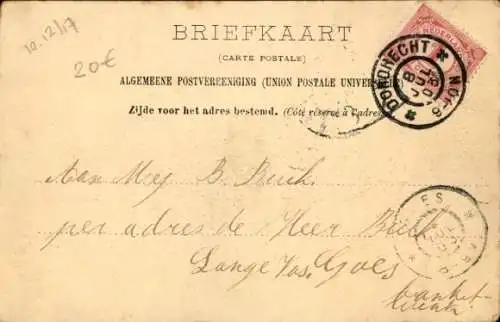 10.12/17
20€
BRIEFKAART
(CARTE POSTALE)
ALGEMEENE POSTVEREENIGING (UNION POSTALE UNIVERSELLE)
Zijde voor het adres bestemd. (Côté réservé à l'adresse)
DORDRECHT
NEDERLAND
Aan Mej B. Buik
per adres de Heer Buik
Lange Vos. Goes
banket-